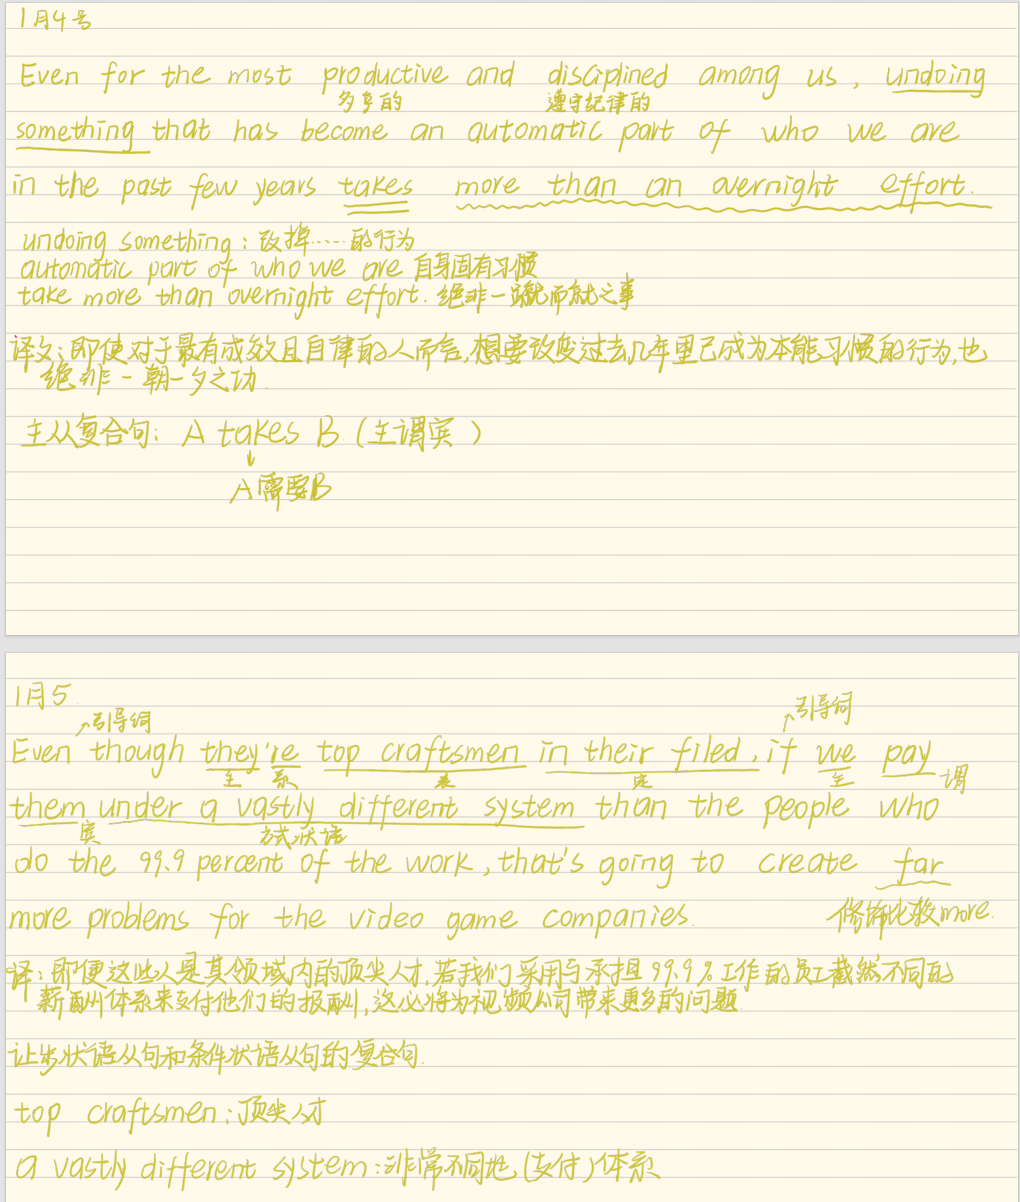 1月4号
Even for the most productive and disciplined among us, undoing
多产的 遵守纪律的
something that has become an automatic part of who we are
in the past few years takes more than an overnight effort.
undoing something: 改掉……的行为
automatic part of who we are 自身固有习惯
take more than overnight effort. 绝非一蹴而就之事
译文: 即使对于最有成效且自律的人而言,想要改变过去几年里已成为本能习惯的行为,也
绝非一朝一夕之功.
主从复合句: A takes B (主谓宾)
↓
A需要B
1月5.
↗引导词 ↗引导词
Even though they're top craftsmen in their filed, if we pay
主 系 表 定 主 谓
them under a vastly different system than the people who
宾 方式状语
do the 99.9 percent of the work, that's going to create far
more problems for the video game companies. 修饰比较more.
译: 即便这些人是其领域内的顶尖人才,若我们采用与承担99.9%工作的员工截然不同的
薪酬体系来支付他们的报酬,这必将为视频公司带来更多的问题
让步状语从句和条件状语从句的复合句.
top craftsmen: 顶尖人才
a vastly different system: 非常不同地,(支付)体系